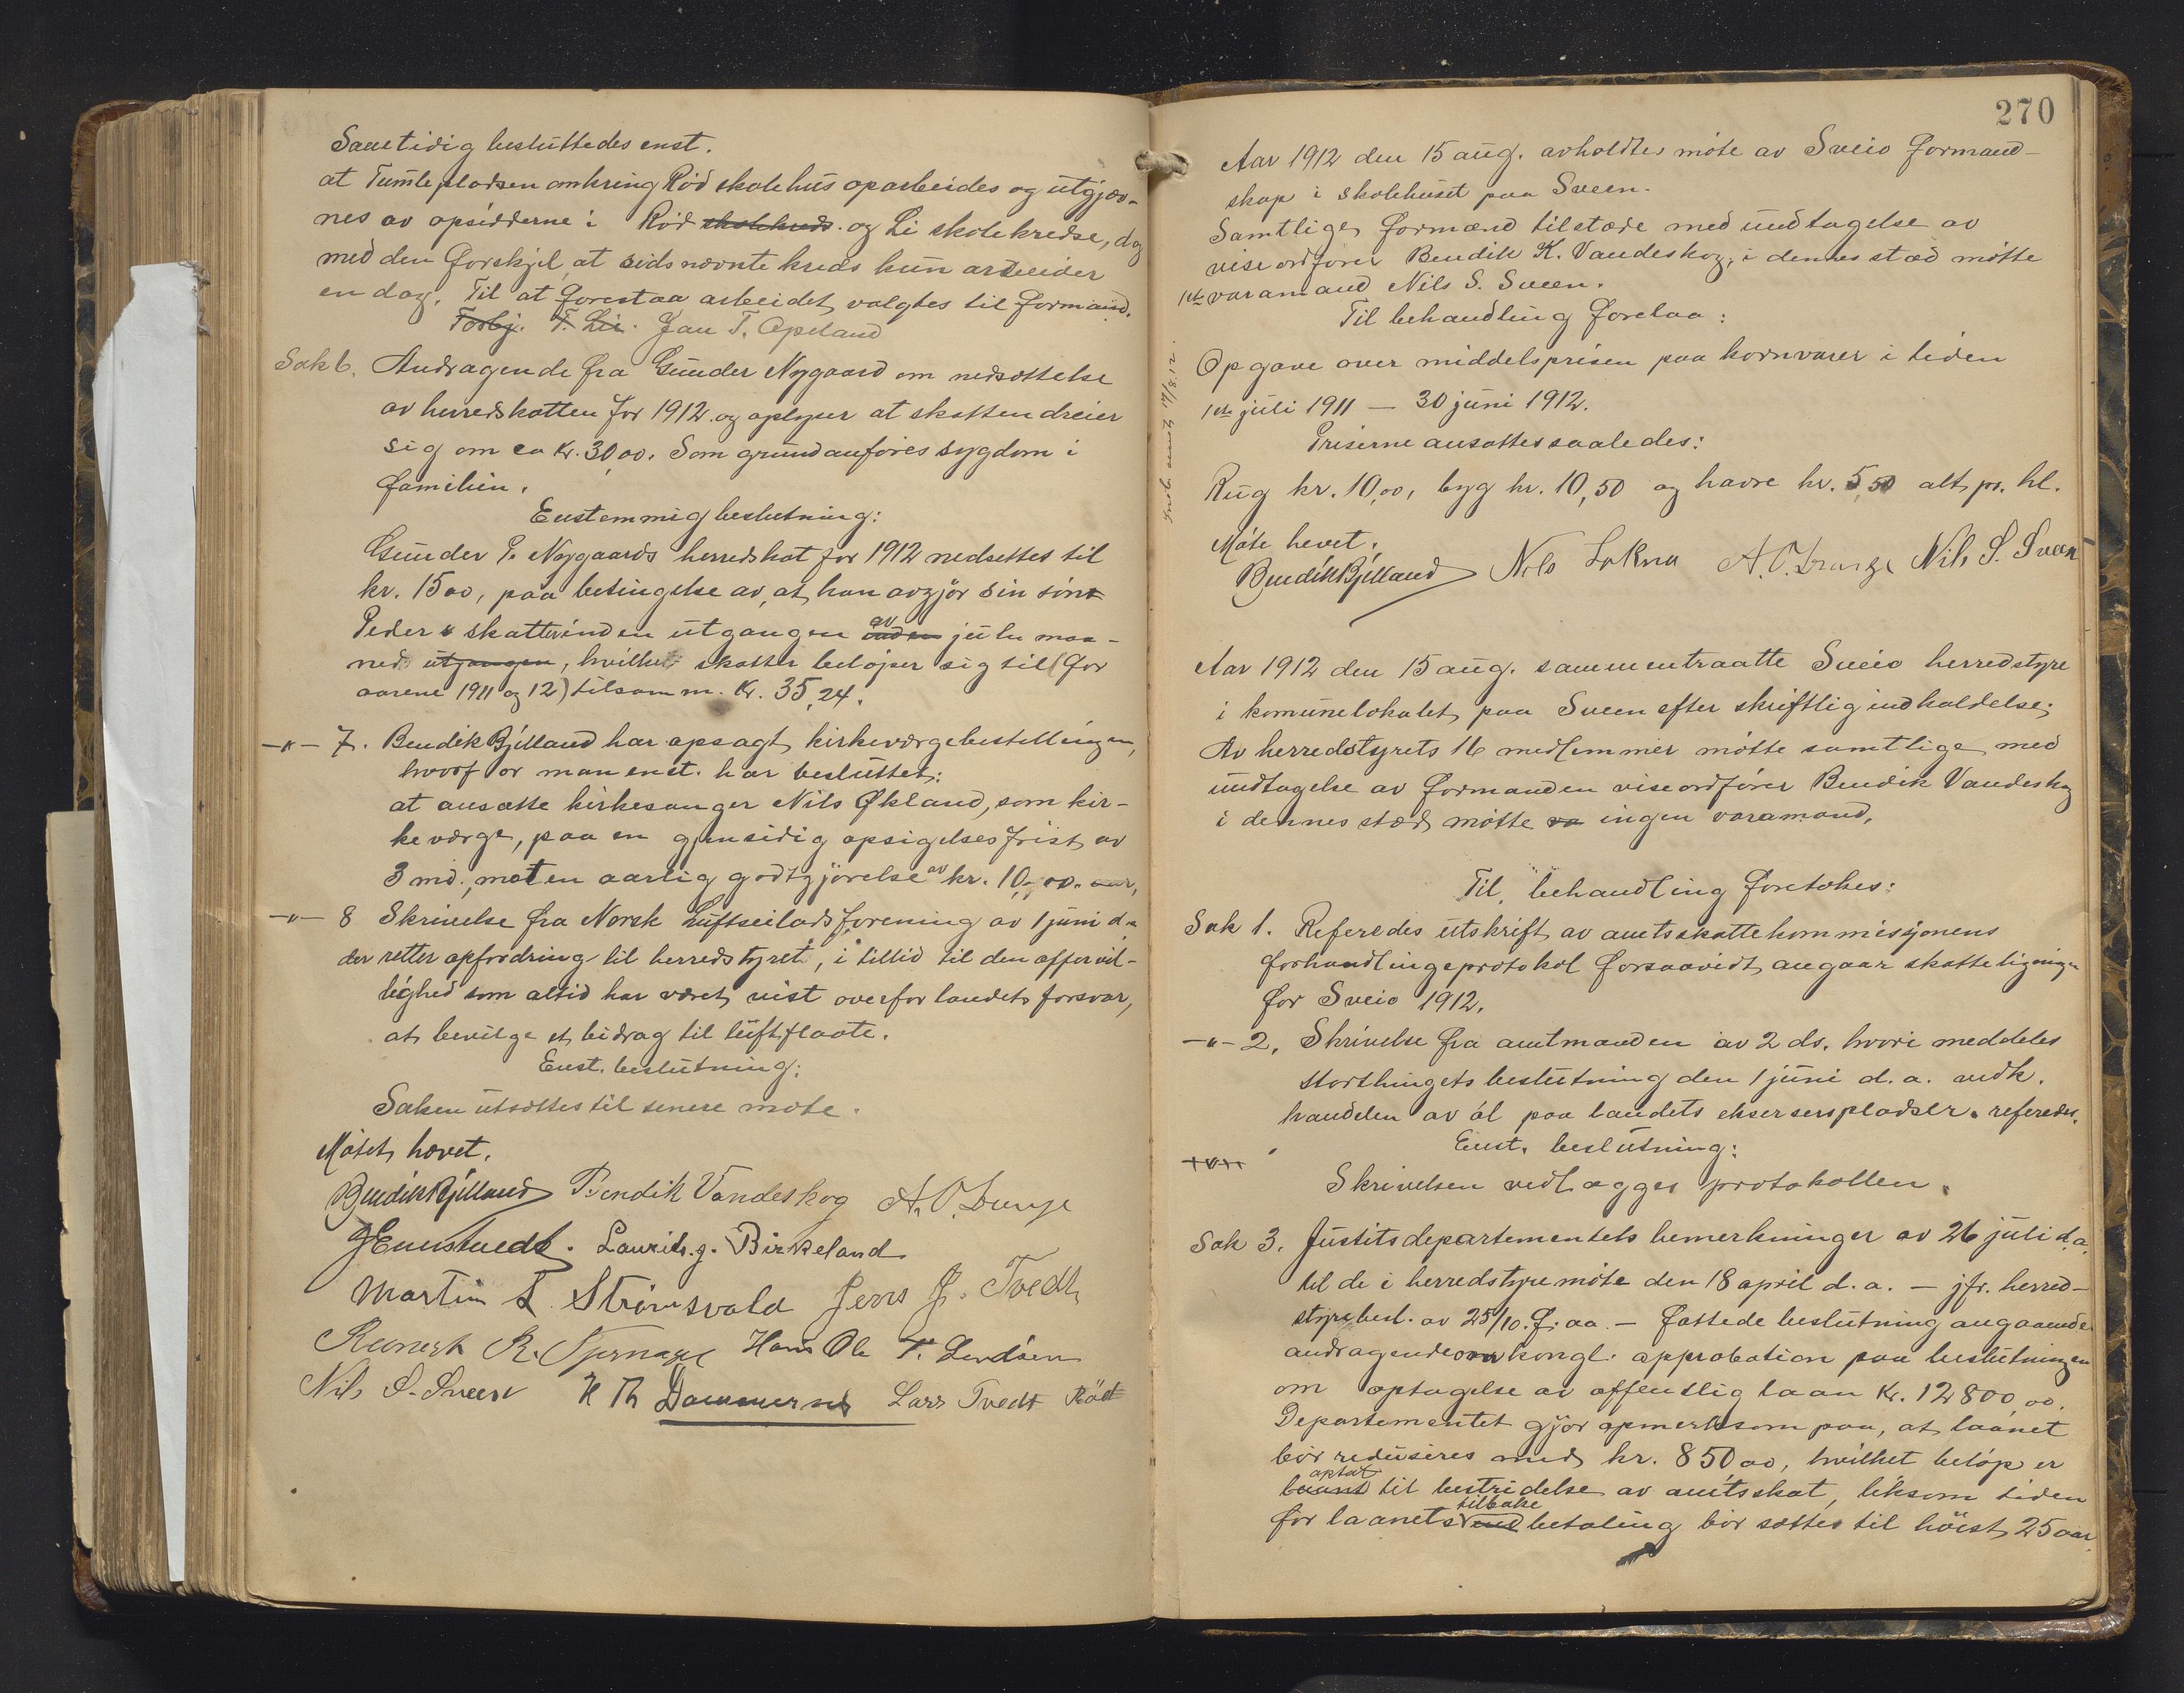 Samtidig besluttedes enst.
at Tumlepladsen omkring Rød skolehus oparbeides og utgjæv-
nes av opsidderne i Rød skolekreds og Li skolekredse, dog
med den forskjel at sidsnævnte kreds kun arbeider
en dag. Til at forestaa arbeidet valgtes til formand.
Torbj. T. Lie. Jan T. Apeland
Sak 6. Andragende fra Gunder Nygaard om nedsættelse
av herredskatten for 1912 og oplyser at skatten dreier
sig om ca kr. 30,00. Som grund anføres sygdom i
familien.
Enstemmig beslutning:
Gunder P. Nygaards herredskat for 1912 nedsettes til
kr. 15 00, paa betingelse av, at han avgjør sin søns
Peders skatter inden utgangen av inden juli maa-
ned utgangen, hvilke skatter beløper sig til (for
aarene 1911 og 12) tilsamm. kr. 35,24.
-"- 7. Bendik Bjelland har opsagt kirkeværgebestillingen,
hvorfor man enst. har besluttet:
at ansætte kirkesanger Nils Økland, som kir-
keværge, paa en gjensidig opsigelsesfrist av
3 md., mot en aarlig godtgjørelse av kr. 10,00.
-"- 8 Skrivelse fra Norsk Luftseiladsforening av 1 juni d.a
der retter opfordring til herredstyret, i tillid til den offervil-
lighed som altid har været vist overfor landets forsvar,
at bevilge et bidrag til luftflaate.
Enst. beslutning:
Saken utsættes til senere møte.
Møtet hævet.
Bendik Bjelland Bendik Vandeskog A. O. Lunge
Laurits. J. Birkeland
Martin T. Strømsvold Jens J. Tvedt
R. Hans Ole T. Lendsen
Nils S. Sveen H Th Lars Tvedt Røe
270
Aar 1912 den 15 aug. avholdtes møte av Sveio formand-
skap i skolehuset paa Sveen.
Samtlige formænd tilstæde med undtagelse av
viseordfører Bendik K. Vandeskog, i dennes stæd møtte
1ste varamand Nils S. Sveen.
Til behandling forelaa:
Opgave over middelsprisen paa kornvarer i tiden
1ste juli 1911 — 30 juni 1912.
17/8.12.
Priserne ansattes saaledes:
Rug kr. 10,00, byg kr. 10,50 og havre kr. 5,50 alt pr. hl.
Møte hevet.
Bendik Bjelland Nils Lokna A. O. Lunge Nils S. Sveen
Aar 1912 den 15 aug. sammentraatte Sveio herredstyre
i komunelokalet paa Sveen efter skriftlig indkaldelse;
Av herredstyrets 16 medlemmer møtte samtlige med
undtagelse av formanden viseordfører Bendik Vandeskog
i dennes stæd møtte va ingen varamand.
Til behandling foretokes:
Sak 1. Referedes utskrift av amtsskattekommisjonens
forhandlingsprotokol forsaavidt angaar skatteligningen
for Sveio 1912.
-"- 2. Skrivelse fra amtmanden av 2 ds. hvori meddeles
storthingets beslutning den 1 juni d.a. vedk.
handelen av øl paa landets eksersersplodser. referedes.
Enst. beslutning:
Skrivelsen vedlægges protokollen.
Sak 3. Justitsdepartementets bemerkninger av 26 juli d.a.
til de i herredstyremøte den 18 april d.a. — jfr. herred-
styrebesl. av 25/10. f. aa. — fattede beslutning angaaende
andragende om kongl. approbation paa beslutningen
om optagelse av offentlig laan kr. 12800 00.
Departementet gjør opmerksom paa, at laanet
bør reduseres med kr. 850 00, hvilket beløp er
laant optat til bestridelse av amtsskat, liksom tiden
for laanets ind tilbake betaling bør sættes til høist 25 aar.